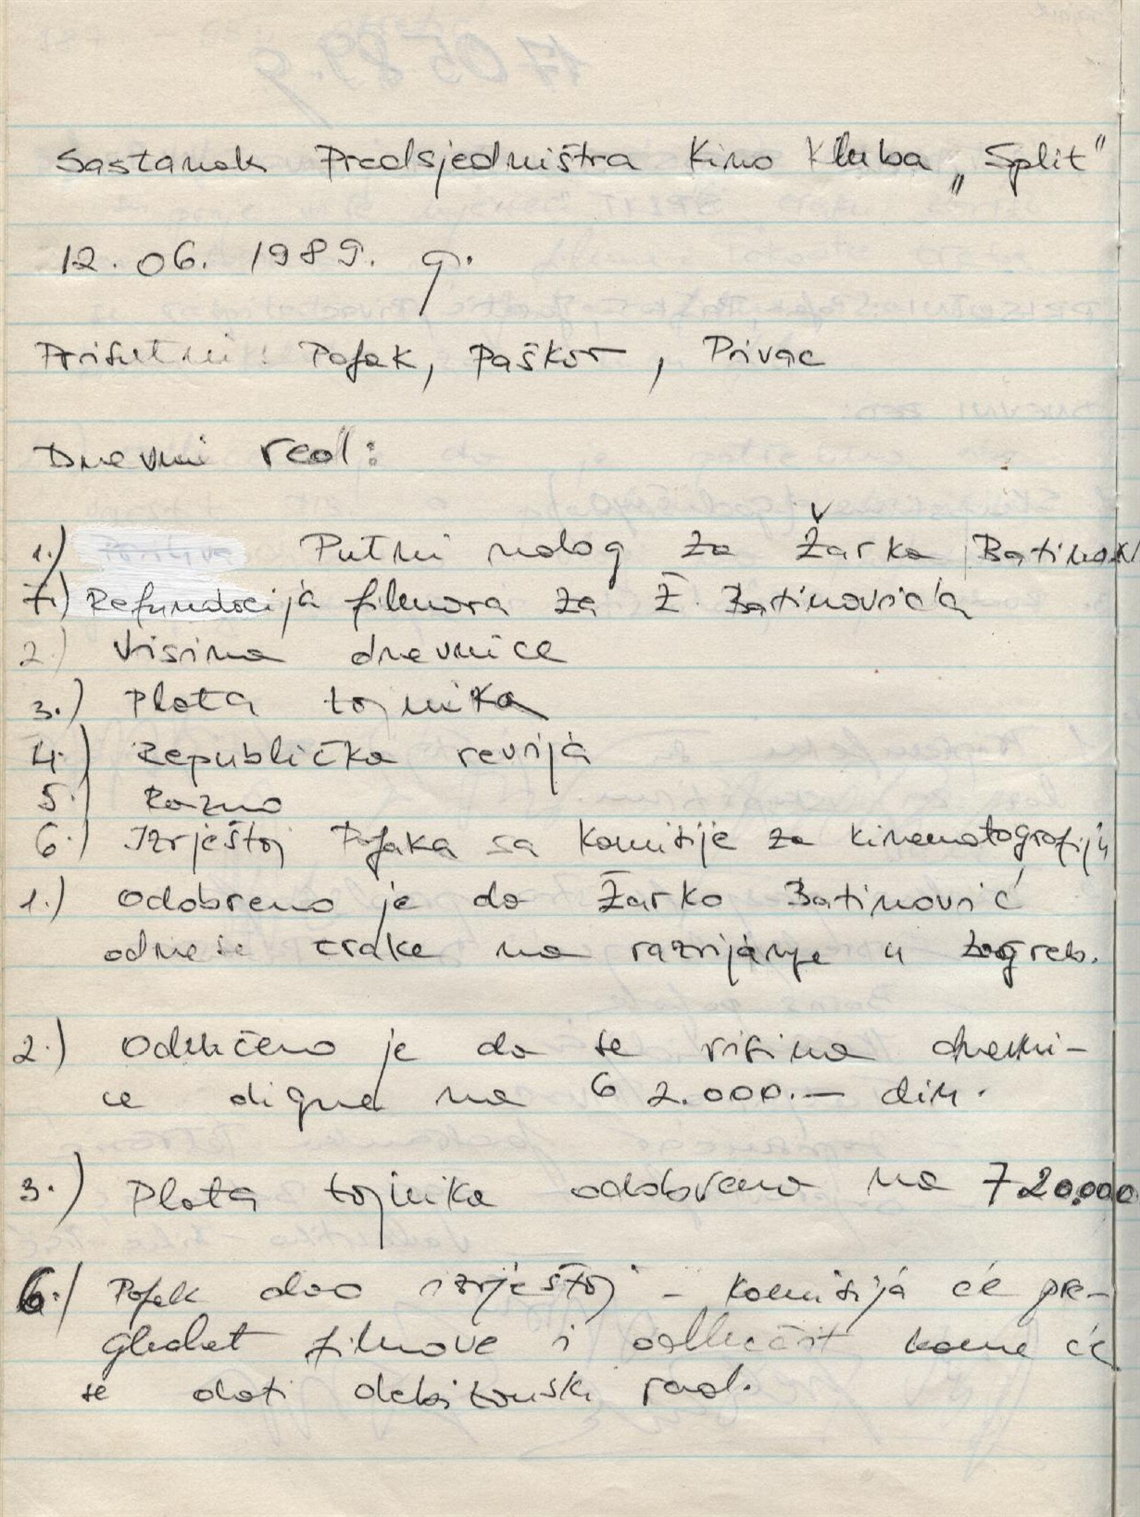 Sastanak Predsjedništva Kino kluba „Split"
12. 06. 1989. g.
Prisutni: Pofak, Paškov, Privac
Dnevni red:
1.) Putni nalog za Žarka Batinov
7.) Refundacija filmova za Ž. Batinovića
2.) Visina dnevnice
3.) Plata tajnika
4.) Republička revija
5.) Razno
6.) Izvještaj Pofaka sa Komisije za kinematografiju
1.) Odobreno je da Žarko Batinović
odnese trake na razvijanje u Zagreb.
2.) Odlučeno je da se visina dnevni-
ce digne na 62.000.- din.
3.) Plata tajnika odobrena na 720.000
6.) Pofak dao izvještaj - komisija će pre-
gledat filmove i odlučit kome će
se dati debitanski rad.